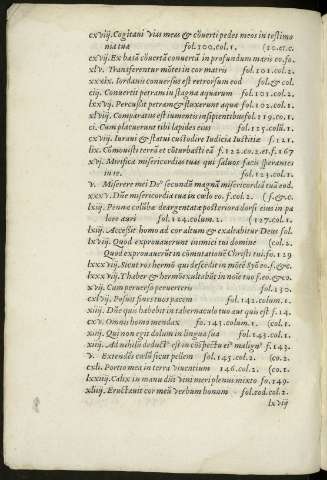 cxviij. Cogitaui vias meas & cōuerti pedes meos in testimo
nia tua fol.100.col.1. (20.et.c.
cxvij. Ex basā cōuertā conuertā in profundum maris eo.fo.
xlv. Transferentur mōtes in cor matris fol.101.col.2.
xxxix. Iordanis conuersus est retrorsum eod fol & col
ciij. Conuertit petram in stagna aquarum fol.101.col.2.
lxxvij. Percussit petram & fluxerunt aquæ fol.102.col.1.
xlviij. Comparatus est iumentis insipientibus fol.119.co.1.
ci. Cum placuerunt tibi lapides eius fol.125.colū.1.
cxviij. Iuraui & statui custodire Iudicia Iustitiæ f.121.
lix. Cōmouisti terrā et cōturbasti eā f.122.co.2.et.f.167
xvj. Mirifica misericordias tuas qui saluos facis sperantes
in te. fol.123.col.1.
v. Miserere mei De⁹ secundū magnā misericordiā tuā eod.
xxxv. Dñe misericordia tua in cœlo eo.f.col.2. (f.&c.
lxvij. Pennæ colūbæ deargentatæ posteriora dorsi eius in pa
lore auri fol.124.colum.2. (127.col.1.
lxiij. Accesset homo ad cor altum & exaltabitur Deus fol.
lxxviij. Quod exprouauerunt inimici tui domine (col.2.
Quod exprouauerūt in cōmutationē Christi tui.fo.129
lxxxviij. Sicut ros hermō qui descēdit in mōtē Syō eo.f.&c.
lxxxviij. Thabor & hermō exultabūt in noīe tuo eo.f.&co.
xvij. Cum peruerso peruerteris fol.130.
cxlvij. Posuit fines tuos pacem fol.142.colum.1.
xiiij. Dñe quis habebit in tabernaculo tuo aut quis est f.14.
cxv. Omnis homo mendax fo.143.colum. (col.1.
xiiij. Qui non egit dolum in lingua sua fol.143.col.1.
xiiij. Ad nihilū deduct⁹ est in cōspectu ei⁹ malign⁹ f.143.
v. Extendēs cœlū sicut pellem fol.145.col.2. (co.2.
cxli. Portio mea in terra viuentium 146.col.2. (co.1.
lxxiiij. Calix in manu dñi vini meri plenus mixto fo.149.
xliij. Eructauit cor meū verbum bonum fol.eod.col.2.
lxvij